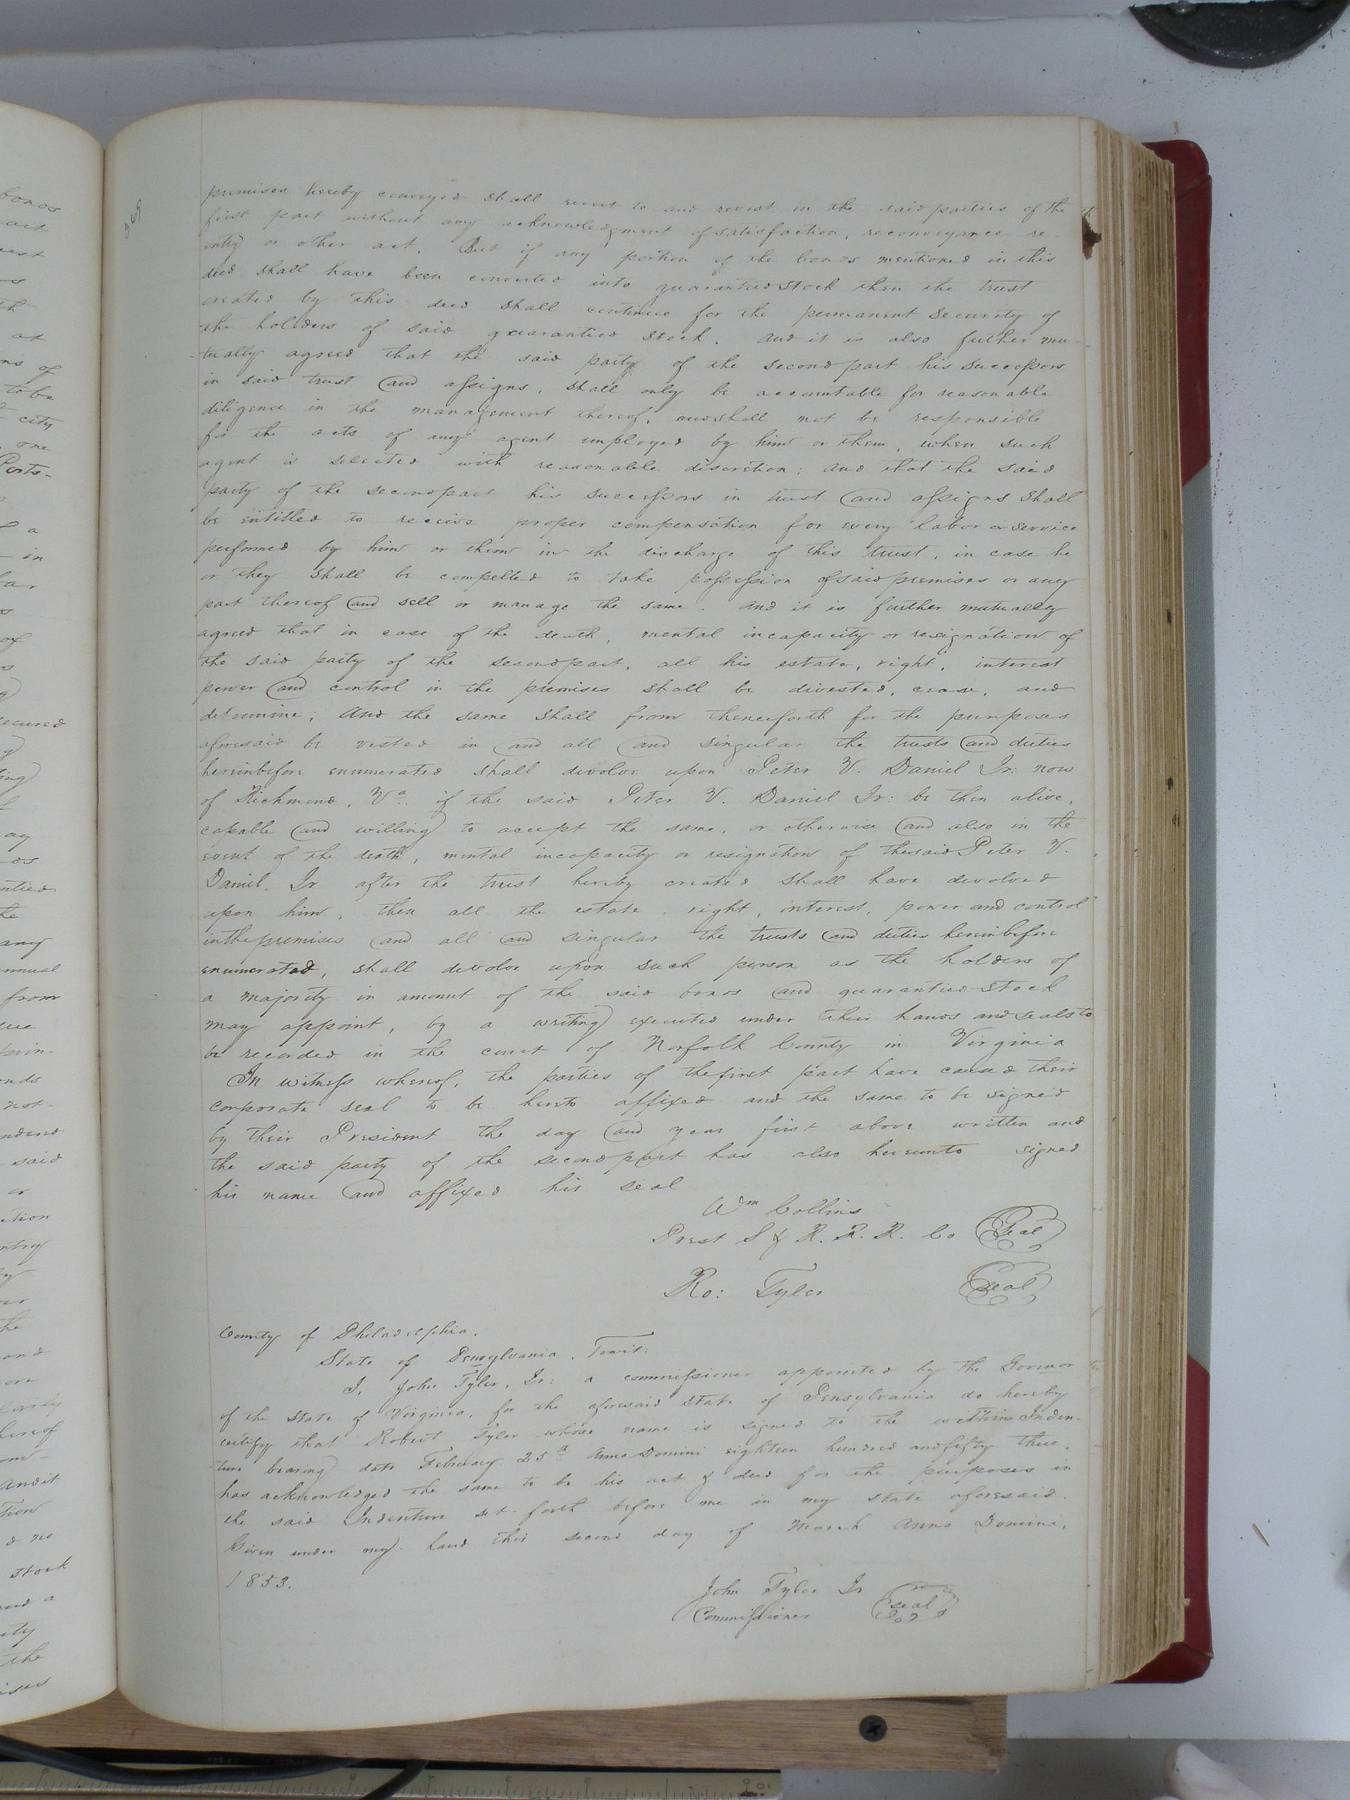 365
premises hereby conveyed shall revert to and revest in the said parties of the
first part without any acknowledgment of satisfaction, reconveyance re-
entry or other act. But if any portion of the bonds mentioned in this
deed shall have been converted into guarantied stock then the trust
created by this deed shall continue for the permanent security of
the holders of said guarantied stock. And it is also further mu-
tually agreed that the said party of the second part his successors
in said trust and assigns, shall only be accountable for reasonable
diligence in the management thereof, and shall not be responsible
for the acts of any agent employed by him or them, when such
agent is selected with reasonable discretion; and that the said
party of the second part his successors in trust and assigns shall
be entitled to receive proper compensation for every labor or service
performed by him or them in the discharge of this trust, in case he
or they shall be compelled to take possession of said premises or any
part thereof and sell or manage the same. And it is further mutually
agreed that in case of the death, mental incapacity or resignation of
the said party of the second part, all his estate, right, interest
power and control in the premises shall be divested, cease, and
determine; And the same shall from thenceforth for the purposes
aforesaid be vested in and all and singular the trusts and duties
hereinbefore enumerated shall devolve upon Peter V. Daniel Jr: now
of Richmond, Va. if the said Peter V. Daniel Jr: be then alive,
capable and willing to accept the same, or otherwise and also in the
event of the death, mental incapacity or resignation of the said Peter V.
Daniel. Jr after the trust hereby created shall have devolved
upon him, then all the estate, right, interest, power and control
in the premises and all and singular the trusts and duties hereinbefore
enumerated, shall devolve upon such person as the holders of
a majority in amount of the said bonds and guarantied stock
may appoint, by a writing executed under their hands and seals to
be recorded in the court of Norfolk County in Virginia
In witness whereof, the parties of the first part have caused their
corporate seal to be hereto affixed and the same to be signed
by their President the day and year first above written and
the said party of the second part has also hereunto signed
his name and affixed his seal
Wm Collins
Prest S & R. R. R. Co Seal
Ro: Tyler Seal
County of Philadelphia.
State of Pensylvania. Towit:
I, John Tyler, Jr: a commissioner appointed by the Govrnor
of the State of Virginia, for the aforesaid State of Pensylvania do hereby
certify that Robert Tyler whose name is signed to the within Inden-
ture bearing date February 25th Anno Domini eighteen hundred and fifty three,
has acknowledged the same to be his act & deed for the purposes in
the said Indenture set forth before me in my state aforesaid.
Given under my hand this second day of March Anno Domini,
1853.
John Tyler Jr
Commissioner seal